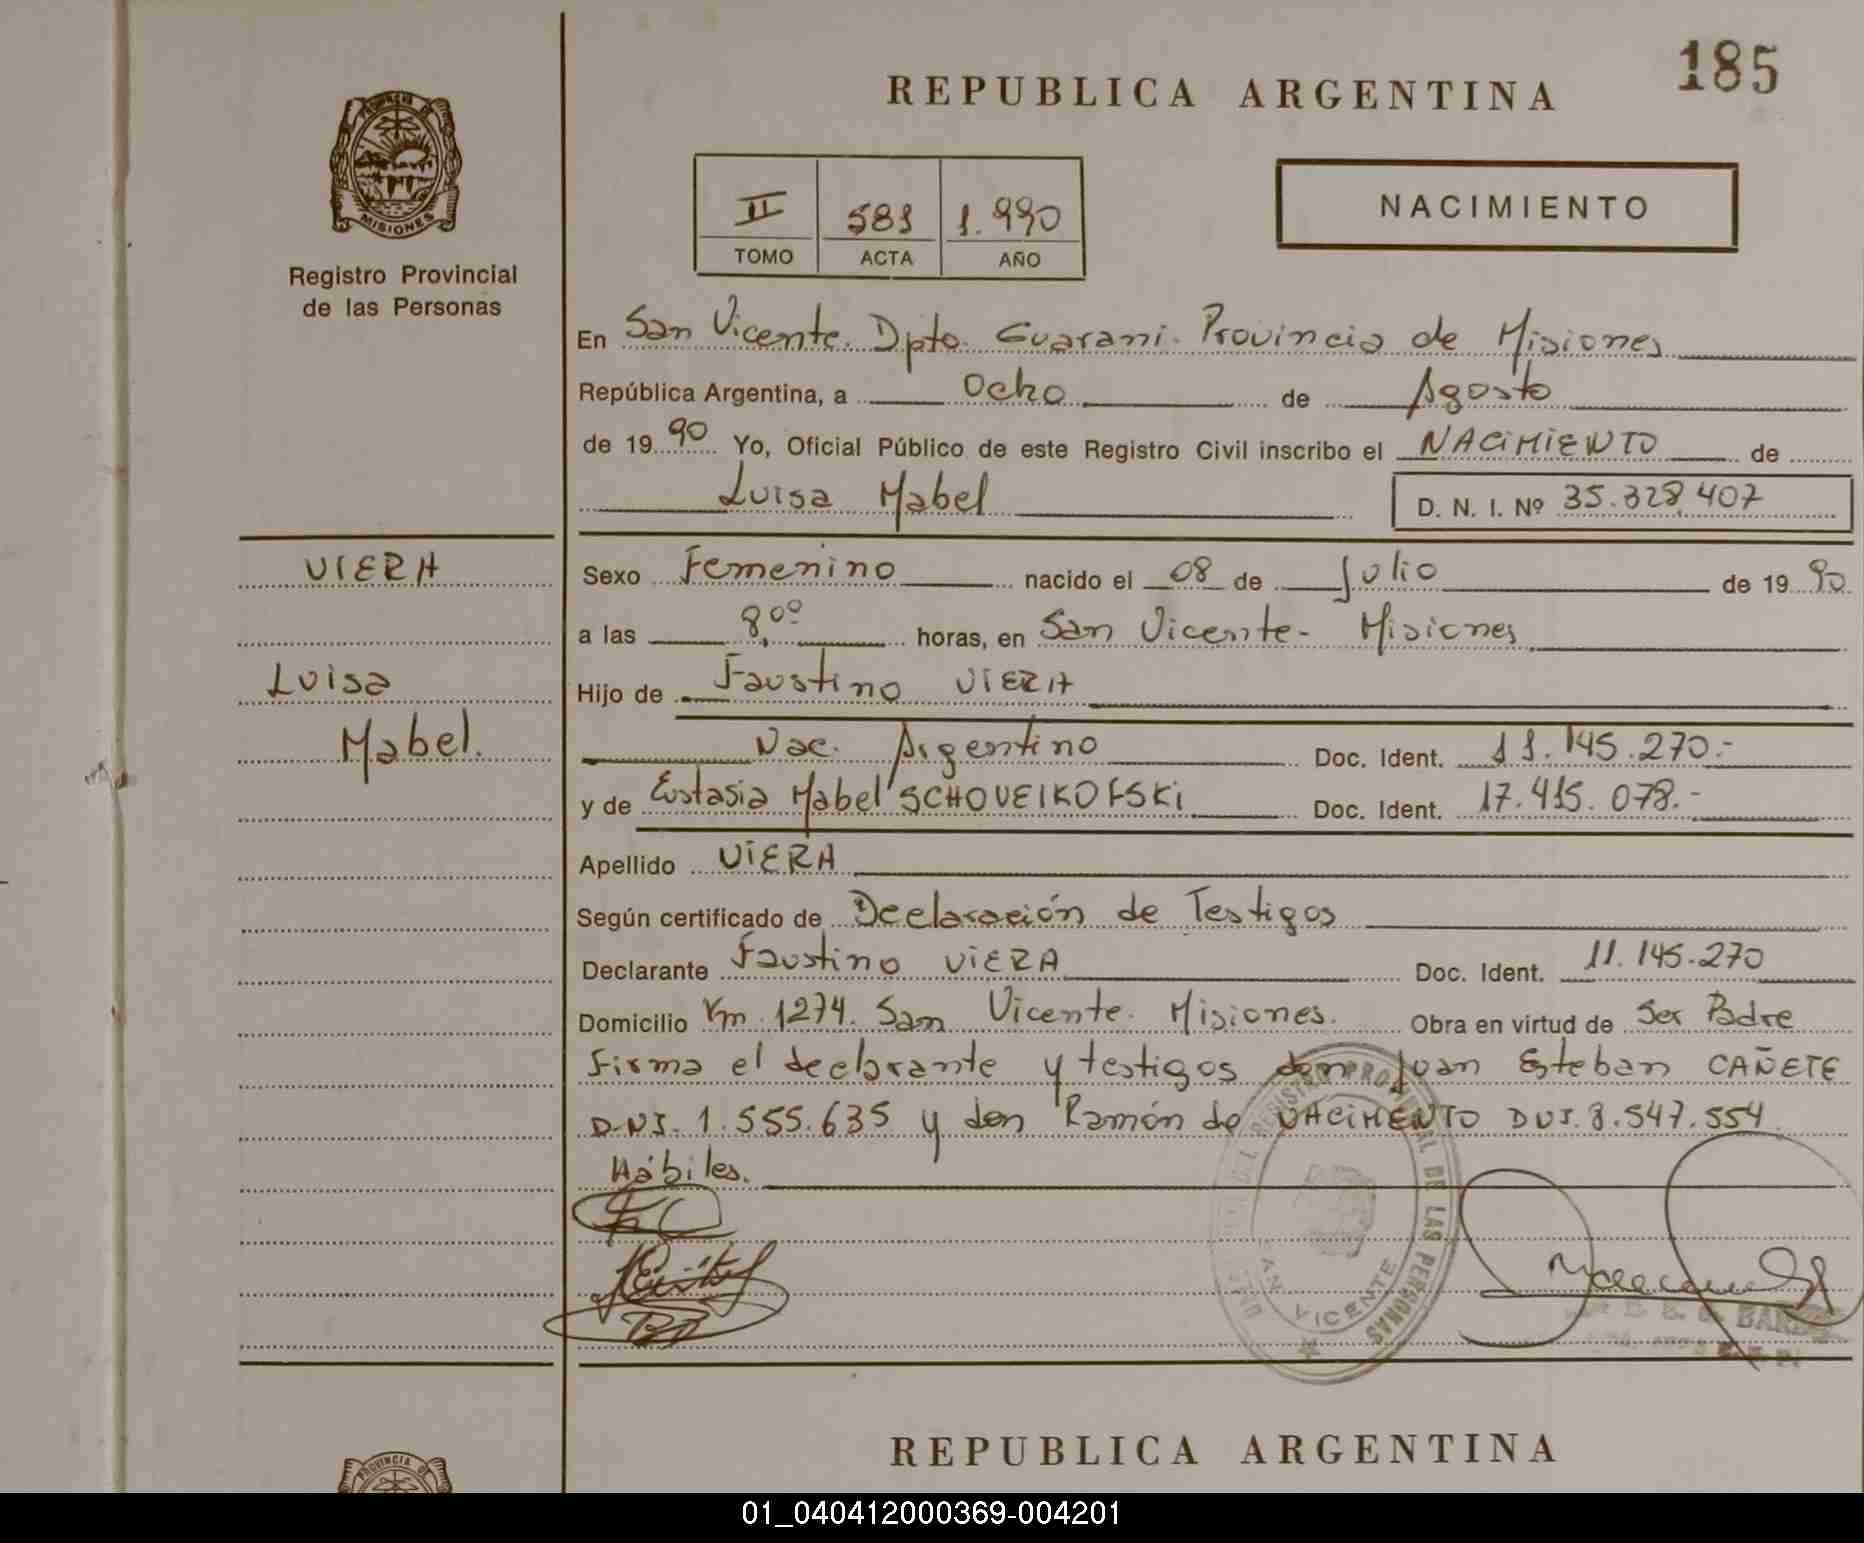 185
REPUBLICA ARGENTINA
PROVINCIA DE
MISIONES
Registro Provincial
de las Personas
II 581 1.990
TOMO ACTA AÑO
NACIMIENTO
En San Vicente. Dpto. Guarani. Provincia de Misiones
República Argentina, a Ocho de Agosto
de 19 90 Yo, Oficial Público de este Registro Civil inscribo el NACIMIENTO de
Luisa Mabel D. N. I. Nº 35.328.407
VIERA
Luisa
Mabel.
Sexo Femenino nacido el 08 de Julio de 19 90.
a las 8,00 horas, en San Vicente- Misiones
Hijo de Faustino VIERA
Nac. Argentino Doc. Ident. 11.145.270.-
y de Eustasia Mabel SCHOVEIKOFSKI Doc. Ident. 17.415.078.-
Apellido VIERA
Según certificado de Declaración de Testigos
Declarante Faustino VIERA Doc. Ident. 11.145.270
Domicilio Km 1274. San Vicente. Misiones. Obra en virtud de Ser Padre
Firma el declarante y testigos don Juan Esteban CAÑETE
D.N.I. 1.555.635 y don Ramón do NACIMENTO DNI. 8.547.554
Hábiles.
DEL REGISTRO PROVINCIAL DE LAS PERSONAS
SAN VICENTE
REPUBLICA ARGENTINA
PROVINCIA DE
01_040412000369-004201